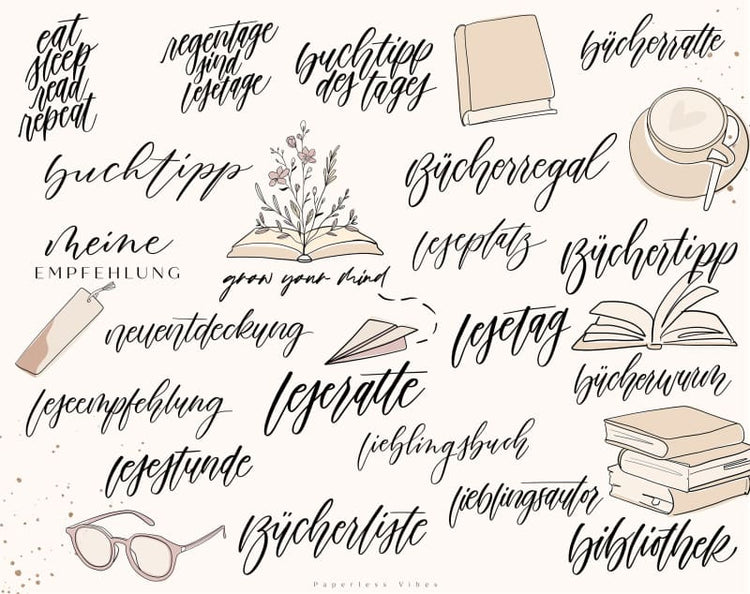 eat
sleep
read
repeat
regentage
sind
lesetage
buchtipp
des tages
bücherratte
buchtipp
Bücherregal
meine
EMPFEHLUNG
leseplatz
Büchertipp
grow your mind
neuentdeckung
lesetag
bücherwurm
leseempfehlung
leseratte
lieblingsbuch
lesestunde
lieblingsautor
Bücherliste
bibliothek
Paperless Vibes